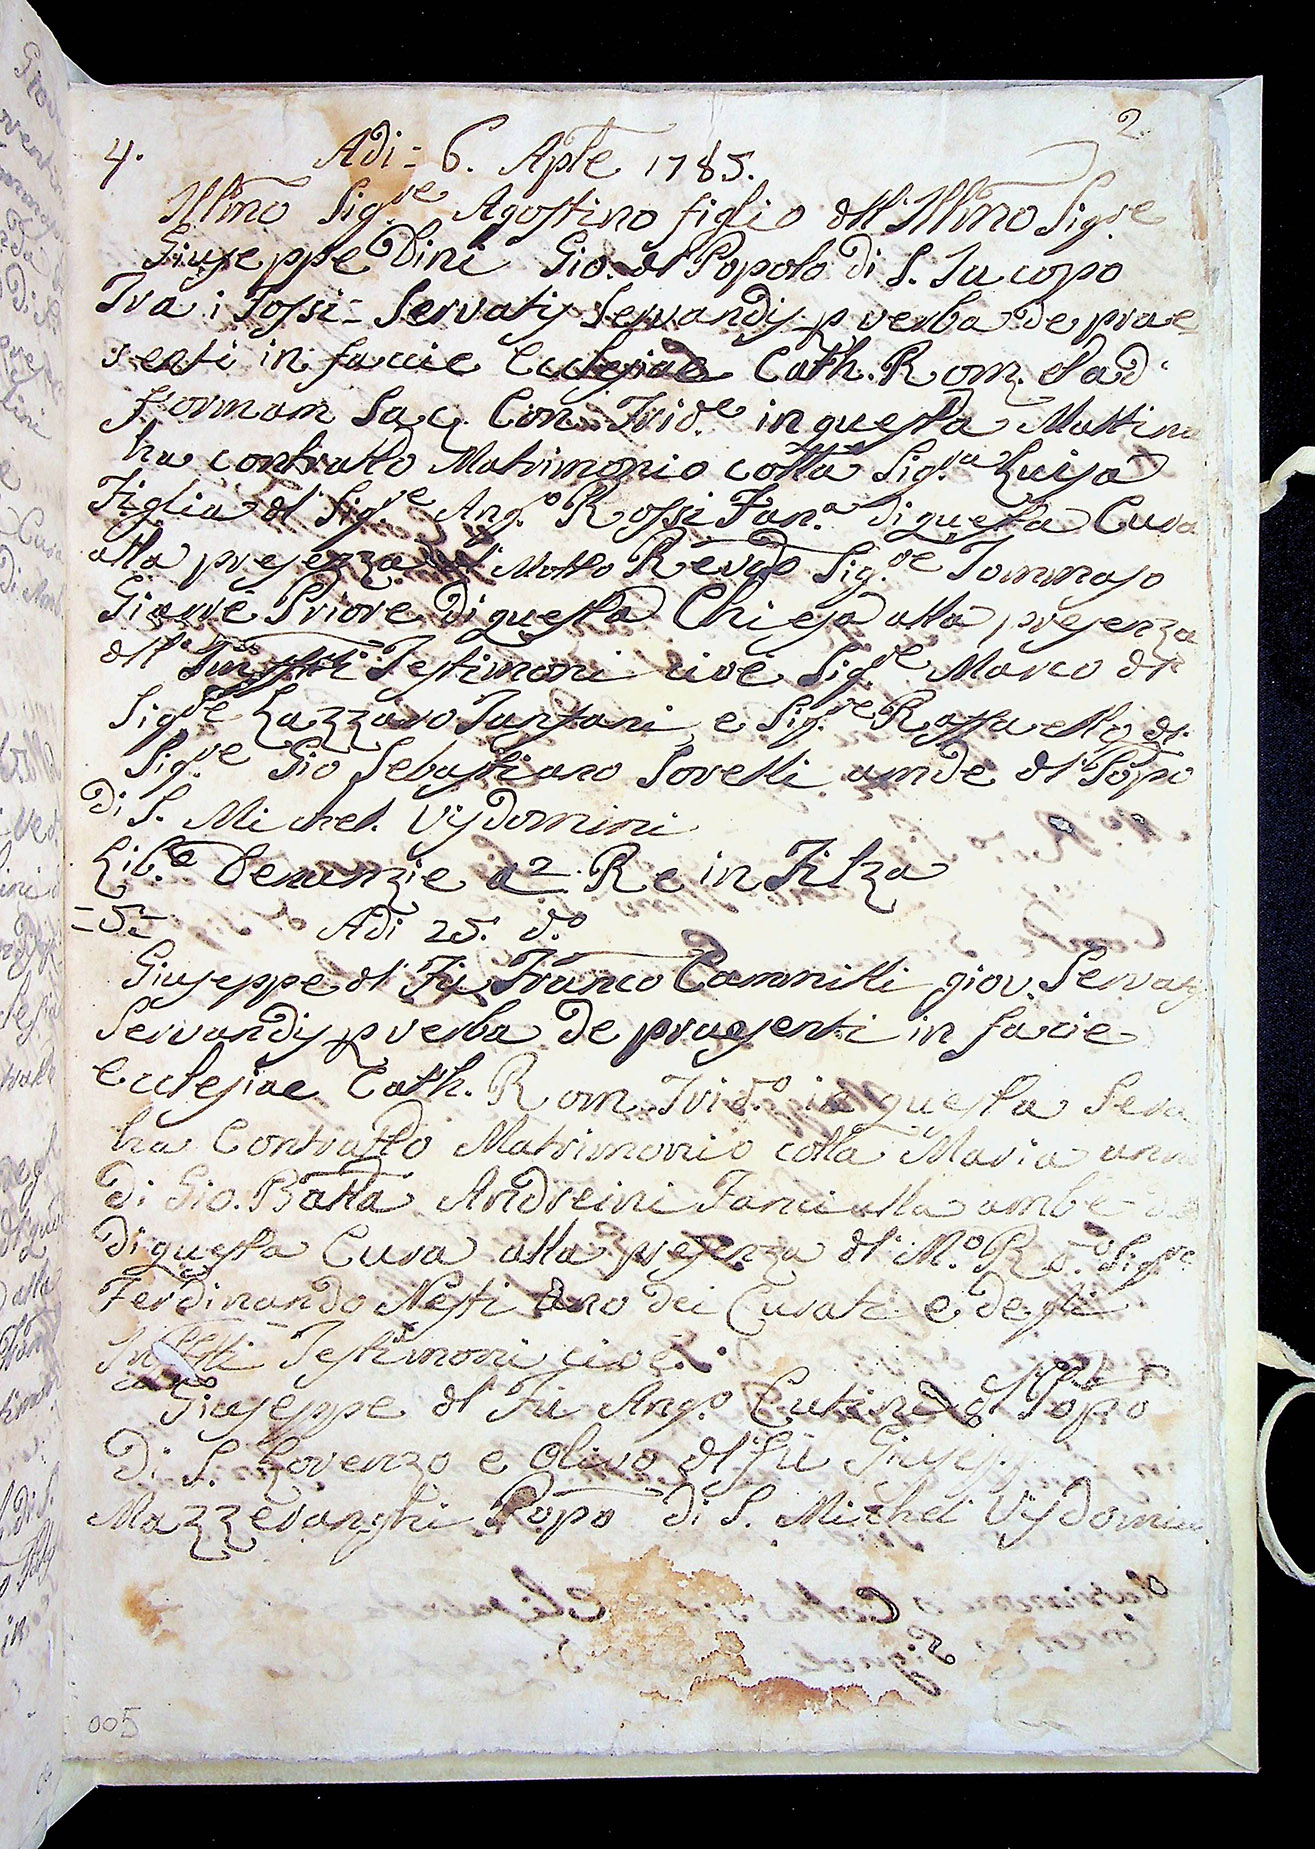 2
4. Adi = 6. Aple 1785.
Illmo Sigre Agostino figlio dll' Illmo Sigre
Giuseppe Dini Gio. dl Popolo di S. Jacopo
Tra i Fossi = Servatis Servandis p verba de prae
senti in faccie Ecclesiae Cath. Rom. et ad
formam Sac. Con. Trid.e in questa Mattina
ha contratto Matrimonio colla Sig.ra Luisa
Figlia dl Sig.re Ang.o Rossi Fan.a di questa Cura
alla presenza dl Molto Revdo Sig.re Tommaso
Priore di questa Chiesa alla presenza
dll' Testimoni cioe Sig.re Marco dl
Sig.re Lazzaro Tanfani e Sig.re Raffaello dl
Sig.re Gio Sebastiano Sorelli amde dl Popo
di S. Michel. Visdomini
Lib.o Denunzie a 2. R e in Filza
= 5 = Adi 25. d.o
Giuseppe dl Fu Franco Cammilli giov. Servatis
Servandis p verba de praesenti in facie
ecclesiae Cath. Rom. Trid.o in questa Sera
ha Contratto Matrimonio colla Maria anna
di Gio. Batta Andreini Fanciulla ambe
di questa Cura alla presenza dl M.o R.do Sig.re
Ferdinando Nesti uno dei Curati e degli
Inftti Testimoni cioe.
Giuseppe dl Fu Ang.o dl Popo
di S. Lorenzo e Olivo dl fu Giusep.
Mazzevanghi Popo di S. Michel Visdomini
005